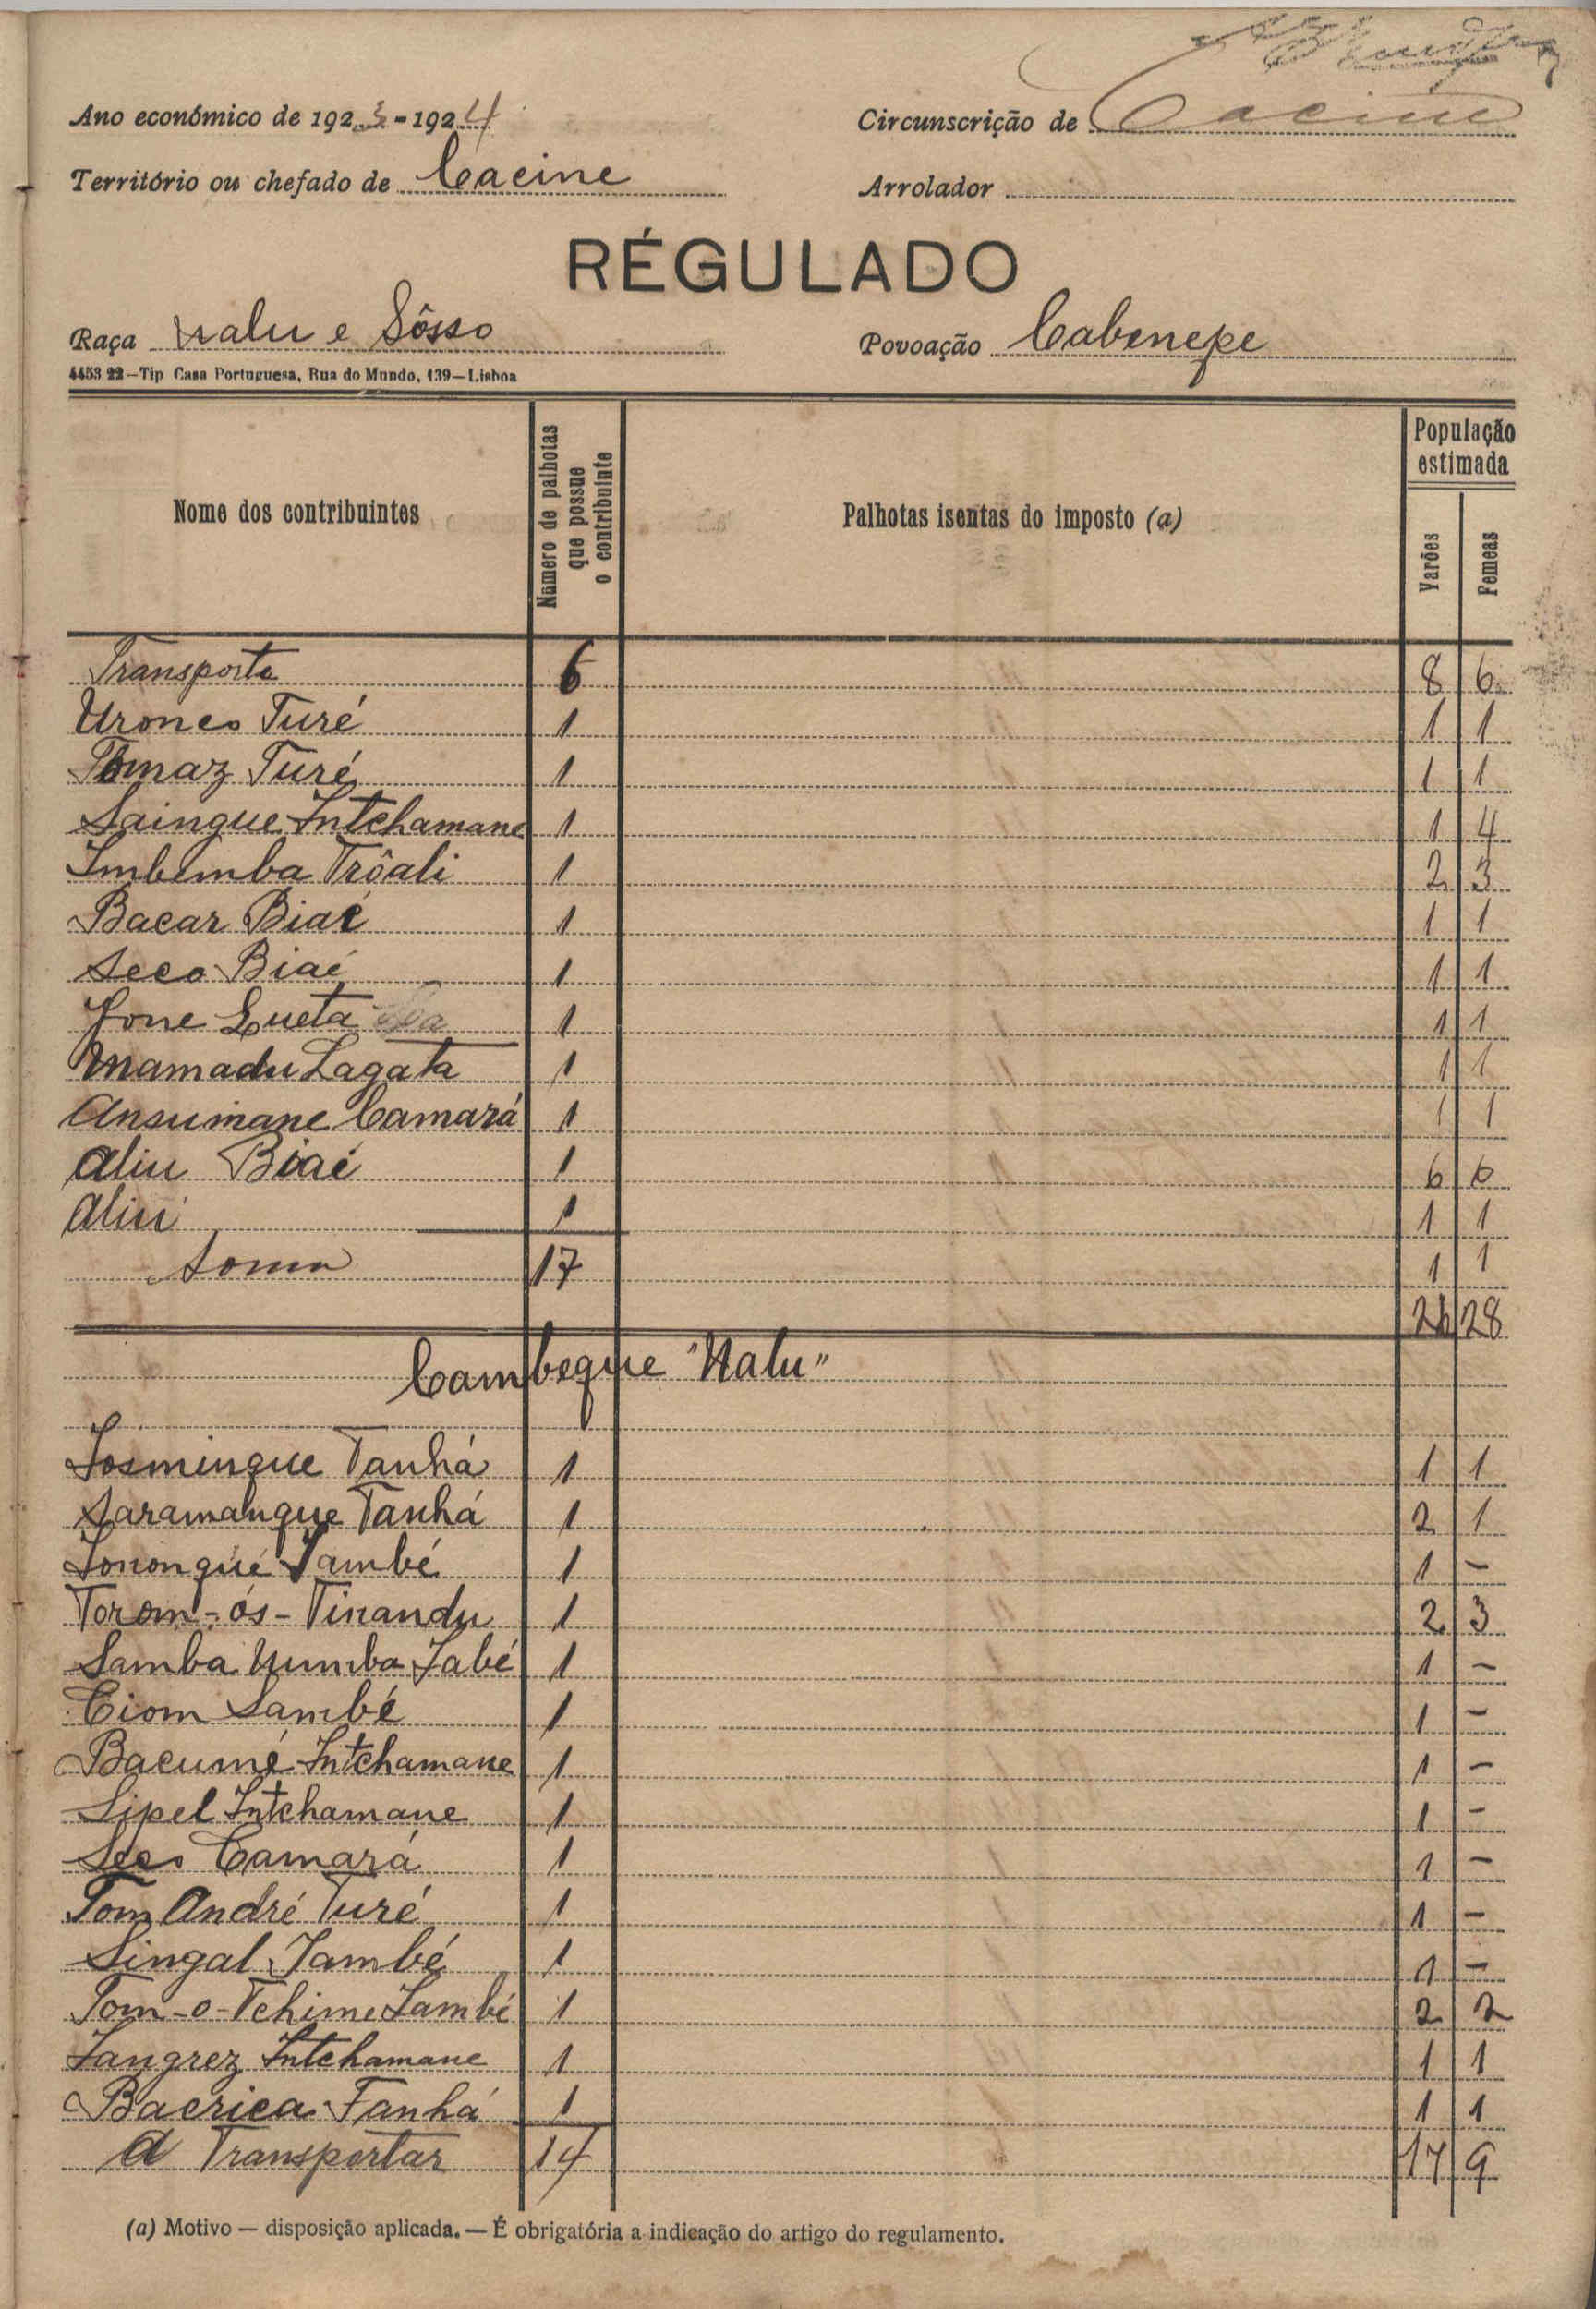 Ano económico de 1923-1924 Circunscrição de Cacine
Território ou chefado de Cacine Arrolador
RÉGULADO
Raça Nalu e Sôsso Povoação Cabenepe
4453 22—Tip Casa Portuguesa, Rua do Mundo, 139—Lisboa
Nome dos contribuintes Número de palhotas que possue o contribuinte Palhotas isentas do imposto (a) População estimada Varões Femeas
Transporte 6 8 6
Uronco Turé 1 1 1
Tomaz Turé 1 1 1
Saingue Intchamane 1 1 4
Imbemba Trôali 1 2 3
Bacar Biaé 1 1 1
Seco Biaé 1 1 1
Jone Lueta 1 1 1
Mamadu Lagata 1 1 1
Ansumane Camará 1 1 1
Aliu Biaé 1 6 6
Aliu 1 1 1
Soma 17 1 1
26 28
Cambeque "Nalu"
Josmingue Tanhá 1 1 1
Saramangue Tanhá 1 2 1
Sonongué Sambé 1 1 -
Torom-ós-Tinandu 1 2 3
Samba Numba Sabé 1 1 -
Ciom Sambé 1 1 -
Bacumé Intchamane 1 1 -
Sipel Intchamane 1 1 -
Seco Camará 1 1 -
Tom André Turé 1 1 -
Singal Sambé 1 1 -
Tom-o-Tchime Sambé 1 2 2
Sangrez Intchamane 1 1 1
Bacrica Tanhá 1 1 1
A Transportar 14 17 9
(a) Motivo — disposição aplicada. — É obrigatória a indicação do artigo do regulamento.